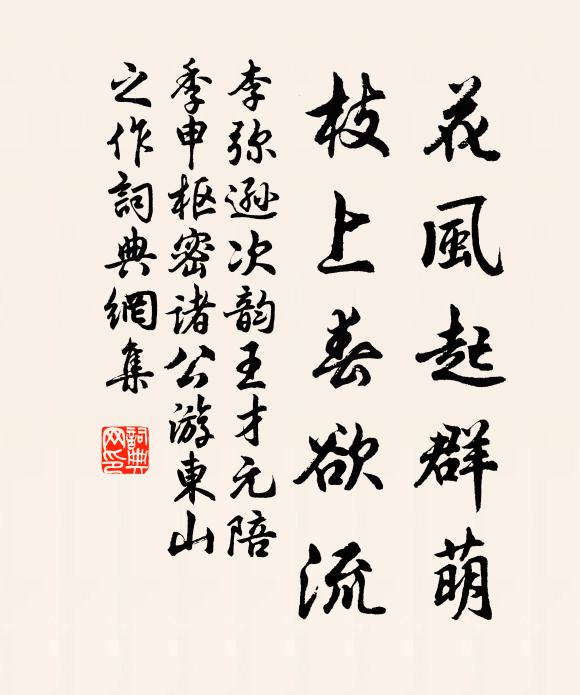 花風起群萌
枝上春欲流
李弥遜次韵王才元陪
季申枢密诸公游東山
之作詞典網集
詞典
网印